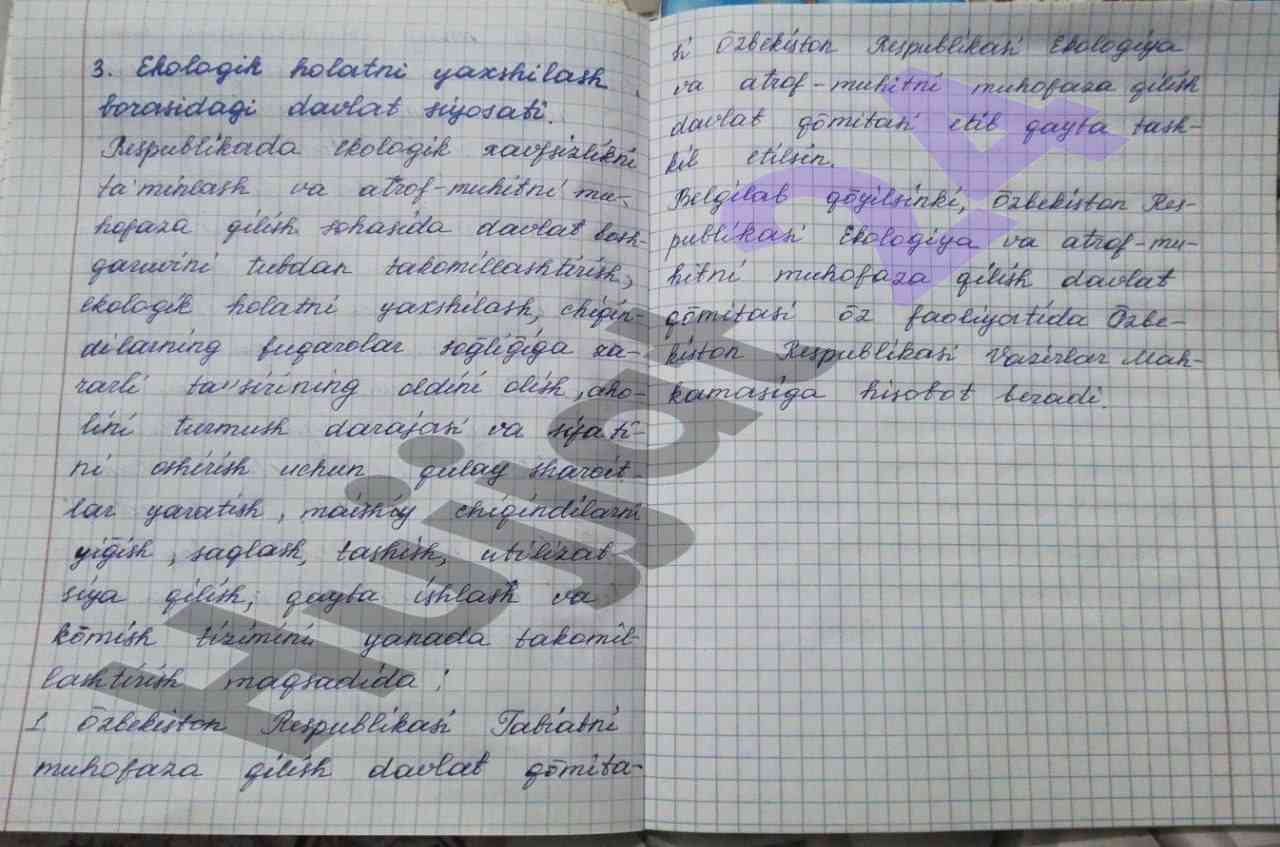 3. Ekologik holatni yaxshilash
borasidagi davlat siyosati.
Respublikada ekologik xavfsizlikni
ta'minlash va atrof-muhitni mu-
hofaza qilish sohasida davlat bosh-
qaruvini tubdan takomillashtirish,
ekologik holatni yaxshilash, chiqin-
dilarning fuqarolar sog̅lig̅iga za-
rarli ta'sirining oldini olish, aho-
lini turmush darajasi va sifati-
ni oshirish uchun qulay sharoit-
lar yaratish, maishiy chiqindilarni
yig̅ish, saqlash, tashish, utilizat-
siya qilish, qayta ishlash va
kōmish tizimini yanada takomil-
lashtirish maqsadida:
1. Ōzbekiston Respublikasi Tabiatni
muhofaza qilish davlat qōmita-
si Ōzbekiston Respublikasi Ekologiya
va atrof-muhitni muhofaza qilish
davlat qōmitasi etib qayta tash-
kil etilsin.
Belgilab qōyilsinki, Ōzbekiston Res-
publikasi Ekologiya va atrof-mu-
hitni muhofaza qilish davlat
qōmitasi ōz faoliyatida Ōzbe-
kiston Respublikasi Vazirlar Mah-
kamasiga hisobot beradi.
Hujjat
24